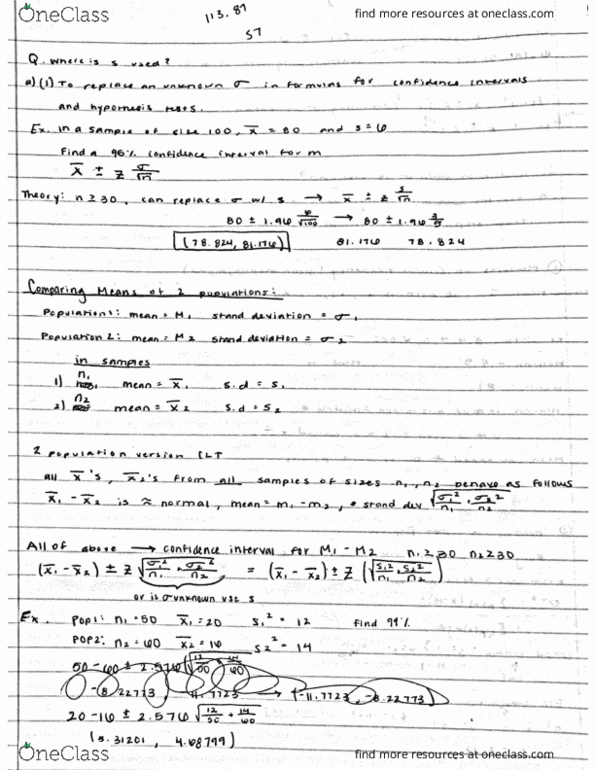 OneClass
find more resources at oneclass.com
113.87
57
Q. Where is s used?
a) (1) To replace an unknown σ in formulas for confidence intervals
and hypothesis tests.
Ex. In a sample of size 100, x̄ = 80 and s=6
Find a 95% confidence interval for m
x̄ ± z σ/√n
Theory: n ≥ 30, can replace σ w/ s → x̄ ± z s/√n
80 ± 1.96 6/√100 → 80 ± 1.96
(78.824, 81.176) 81.176 78.824
Comparing Means of 2 populations:
Population 1: mean = M₁ stand deviation = σ₁
Population 2: mean = M₂ stand deviation = σ₂
in samples
1) n₁ mean = x̄₁ s.d = s₁
2) n₂ mean = x̄₂ s.d = s₂
2 population version CLT
all x̄'s, x̄₂'s from all samples of sizes n₁, n₂ behave as follows
x̄₁ - x̄₂ is ≈ normal, mean = m₁ - m₂, stand dev √σ₁²/n₁ + σ₂²/n₂
All of above → confidence interval for M₁ - M₂ n₁ ≥ 30 n₂ ≥ 30
(x̄₁ - x̄₂) ± z √σ₁²/n₁ + σ₂²/n₂ = (x̄₁ - x̄₂) ± z (√s₁²/n₁ + s₂²/n₂)
or is σ unknown use s
Ex. Pop1: n₁ = 50 x̄₁ = 20 s₁² = 12 find 99%
Pop2: n₂ = 60 x̄₂ = 16 s₂² = 14
50 - 60 ± 2.576 √12/50 + 14/60
-8.22773, 11.7723 → (-11.7723, -8.22773)
20 - 16 ± 2.576 √12/50 + 14/60
(5.31201, 4.68799)
OneClass
find more resources at oneclass.com